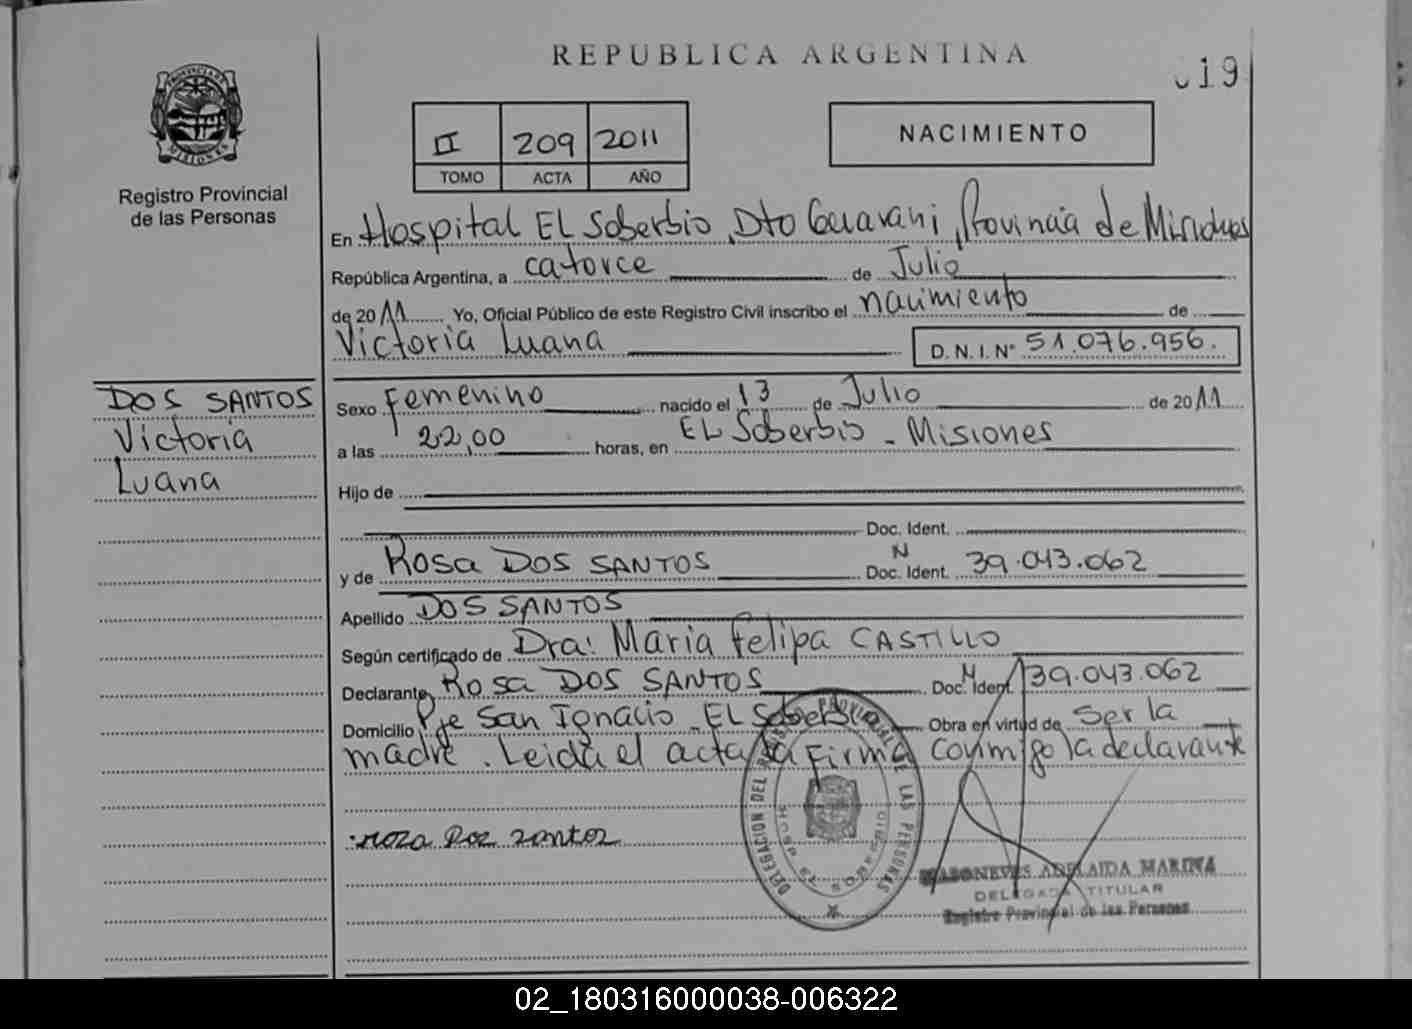 REPUBLICA ARGENTINA
019
PROVINCIA DE
MISIONES
Registro Provincial
de las Personas
II 209 2011
TOMO ACTA AÑO
NACIMIENTO
En Hospital EL Soberbio, Dto Guarani, Provincia de Misiones
República Argentina, a catorce de Julio
de 2011 Yo, Oficial Público de este Registro Civil inscribo el nacimiento de
Victoria Luana D.N.I. Nº 51.076.956.
DOS SANTOS
Victoria
Luana
Sexo Femenino nacido el 13 de Julio de 2011
a las 22,00 horas, en EL Soberbio - Misiones
Hijo de
Doc. Ident.
y de Rosa DOS SANTOS Doc. Ident. N 39.043.062
Apellido DOS SANTOS
Según certificado de Dra: Maria Felipa CASTILLO
Declarante Rosa DOS SANTOS Doc. Ident. N 39.043.062
Domicilio Pje San Ignacio - EL Soberbio Obra en virtud de Ser la
madre. Leida el acta la Firma conmigo la declarante
roza Doz zantoz
DELEGACION DEL REGISTRO PROVINCIAL DE LAS PERSONAS
ADELAIDA MARINA
DELEGADA TITULAR
Registro Provincial de las Personas
02_180316000038-006322